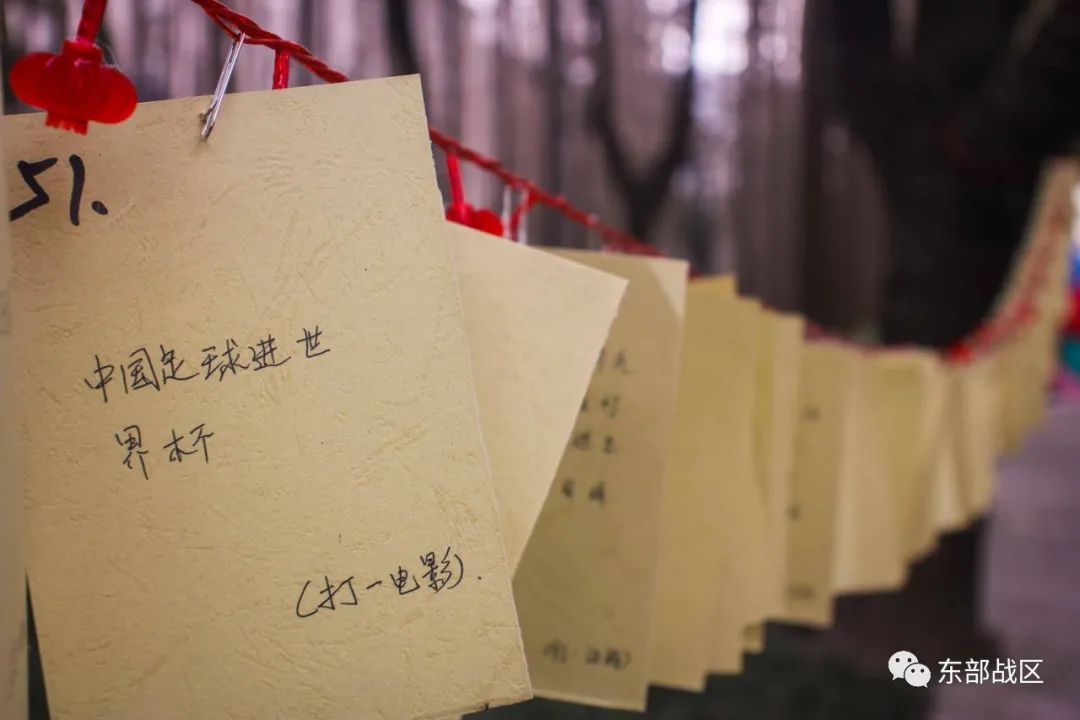 51.
中国足球进世
界杯
(打一电影).
东部战区